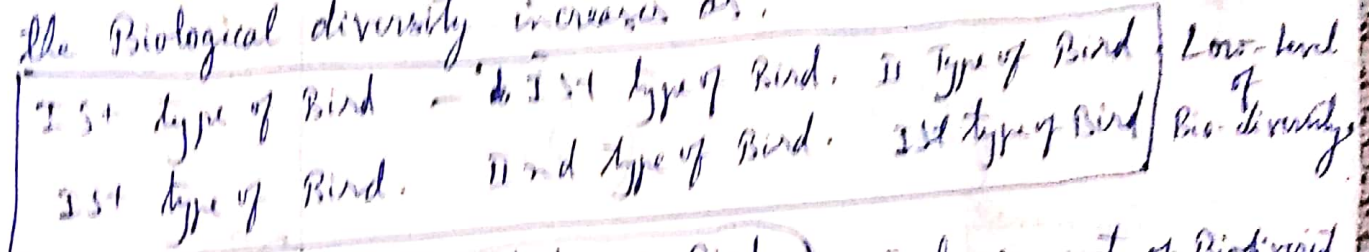 the Biological diversity increases as,
Ist type of Bird - Ist type of Bird. II Type of Bird
Ist type of Bird. II nd type of Bird. Ist type of Bird
Low-level
of
Bio-diversity
of Biodiversit